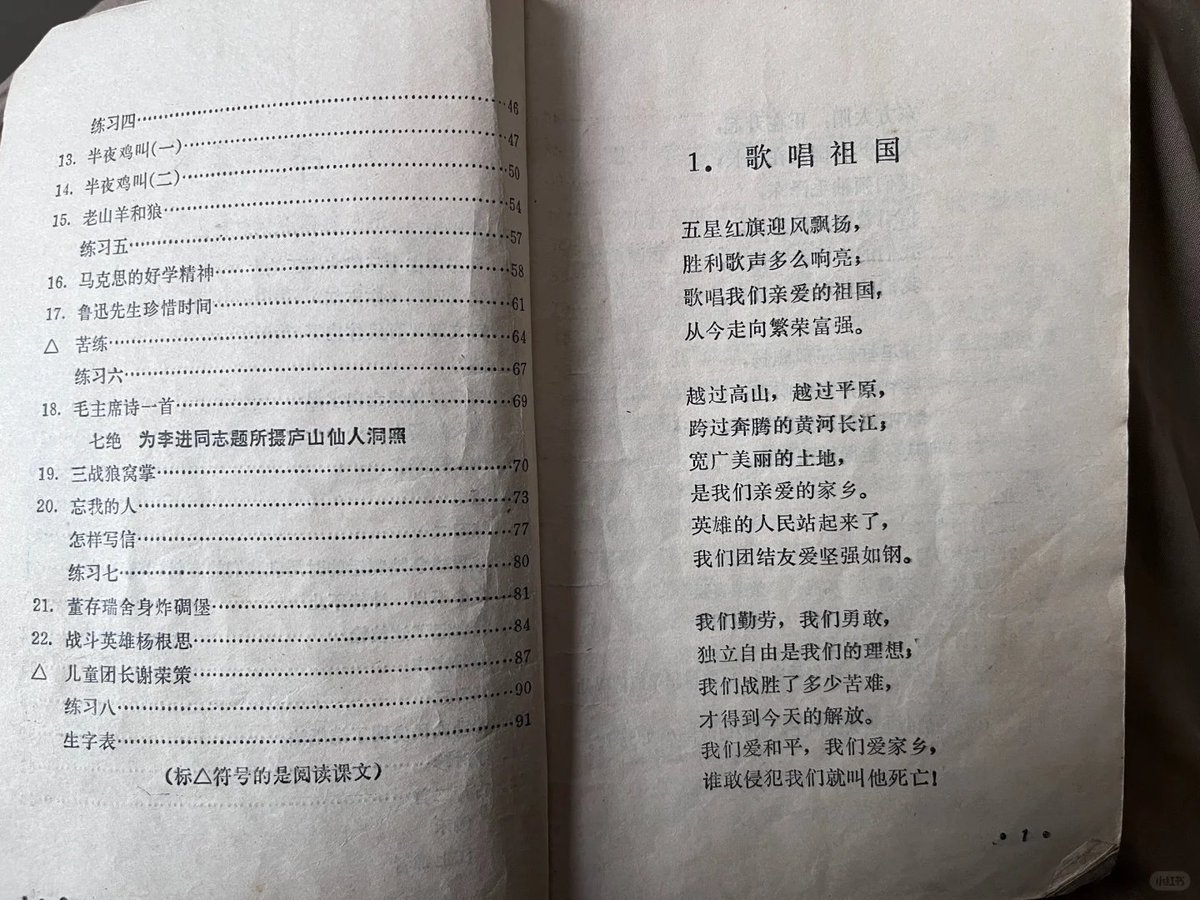 练习四……46
13. 半夜鸡叫(一)……47
14. 半夜鸡叫(二)……50
15. 老山羊和狼……54
练习五……57
16. 马克思的好学精神……58
17. 鲁迅先生珍惜时间……61
△ 苦练……64
练习六……67
18. 毛主席诗一首……69
七绝 为李进同志题所摄庐山仙人洞照
19. 三战狼窝掌……70
20. 忘我的人……73
怎样写信……77
练习七……80
21. 董存瑞舍身炸碉堡……81
22. 战斗英雄杨根思……84
△ 儿童团长谢荣策……87
练习八……90
生字表……91
(标△符号的是阅读课文)
1. 歌唱祖国
五星红旗迎风飘扬，
胜利歌声多么响亮；
歌唱我们亲爱的祖国，
从今走向繁荣富强。
越过高山，越过平原，
跨过奔腾的黄河长江；
宽广美丽的土地，
是我们亲爱的家乡。
英雄的人民站起来了，
我们团结友爱坚强如钢。
我们勤劳，我们勇敢，
独立自由是我们的理想；
我们战胜了多少苦难，
才得到今天的解放。
我们爱和平，我们爱家乡，
谁敢侵犯我们就叫他死亡！
• 1 •
小红书